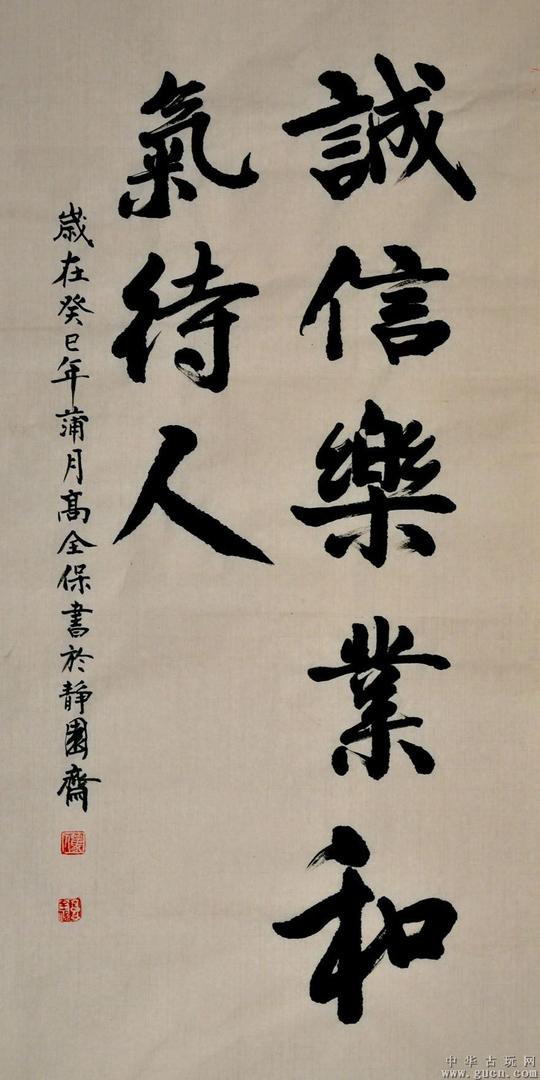 誠信樂業和
氣待人
歲在癸巳年蒲月高全保書於靜園齋
中华古玩网
www.gucn.com